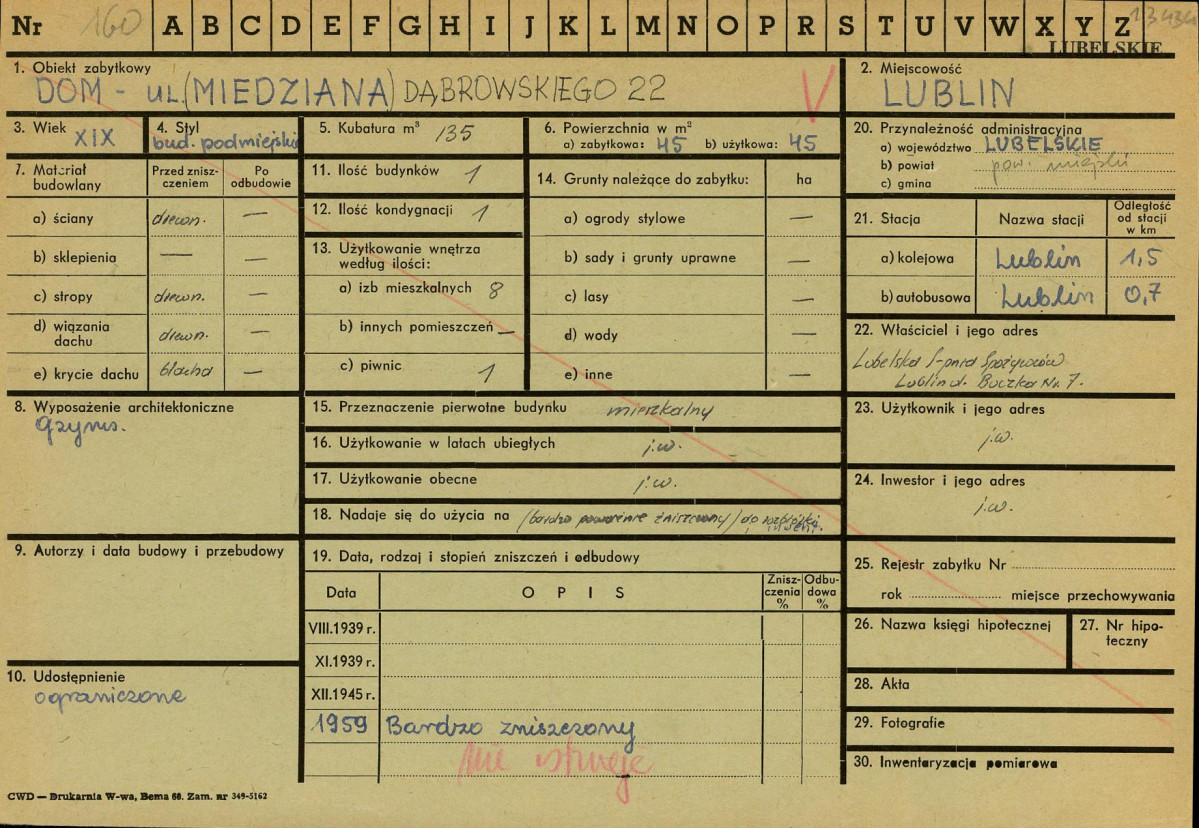 Nr 160 A B C D E F G H I J K L M N O P R S T U V W X Y Z
LUBELSKIE
1. Obiekt zabytkowy
DOM - ul. (MIEDZIANA) DĄBROWSKIEGO 22
2. Miejscowość
LUBLIN
3. Wiek
XIX
4. Styl
bud. podmiejskie
5. Kubatura m³ 135
6. Powierzchnia w m²
a) zabytkowa: 45 b) użytkowa: 45
20. Przynależność administracyjna
a) województwo LUBELSKIE
b) powiat pow. miejski
c) gmina
7. Materiał budowlany
Przed zniszczeniem
Po odbudowie
a) ściany drewn. —
b) sklepienia — —
c) stropy drewn. —
d) wiązania dachu drewn. —
e) krycie dachu blacha —
11. Ilość budynków 1
12. Ilość kondygnacji 1
13. Użytkowanie wnętrza
według ilości:
a) izb mieszkalnych 8
b) innych pomieszczeń —
c) piwnic 1
14. Grunty należące do zabytku: ha
a) ogrody stylowe —
b) sady i grunty uprawne —
c) lasy —
d) wody —
e) inne —
21. Stacja Nazwa stacji Odległość od stacji w km
a) kolejowa Lublin 1,5
b) autobusowa Lublin 0,7
22. Właściciel i jego adres
Lubelska S-pnia Spożywców
Lublin ul. Buczka Nr. 7.
8. Wyposażenie architektoniczne
Gzyms.
15. Przeznaczenie pierwotne budynku mieszkalny
16. Użytkowanie w latach ubiegłych j.w.
17. Użytkowanie obecne j.w.
18. Nadaje się do użycia na (bardzo poważnie zniszczony) do rozbiórki
23. Użytkownik i jego adres
j.w.
24. Inwestor i jego adres
j.w.
9. Autorzy i data budowy i przebudowy
19. Data, rodzaj i stopień zniszczeń i odbudowy
Data OPIS Zniszczenia % Odbudowa %
VIII.1939 r.
XI.1939 r.
XII.1945 r.
1959 Bardzo zniszczony
nie istnieje
25. Rejestr zabytku Nr
rok miejsce przechowywania
26. Nazwa księgi hipotecznej
27. Nr hipoteczny
28. Akta
29. Fotografie
30. Inwentaryzacja pomiarowa
10. Udostępnienie
ograniczone
CWD — Drukarnia W-wa, Bema 60. Zam. nr 349-5162